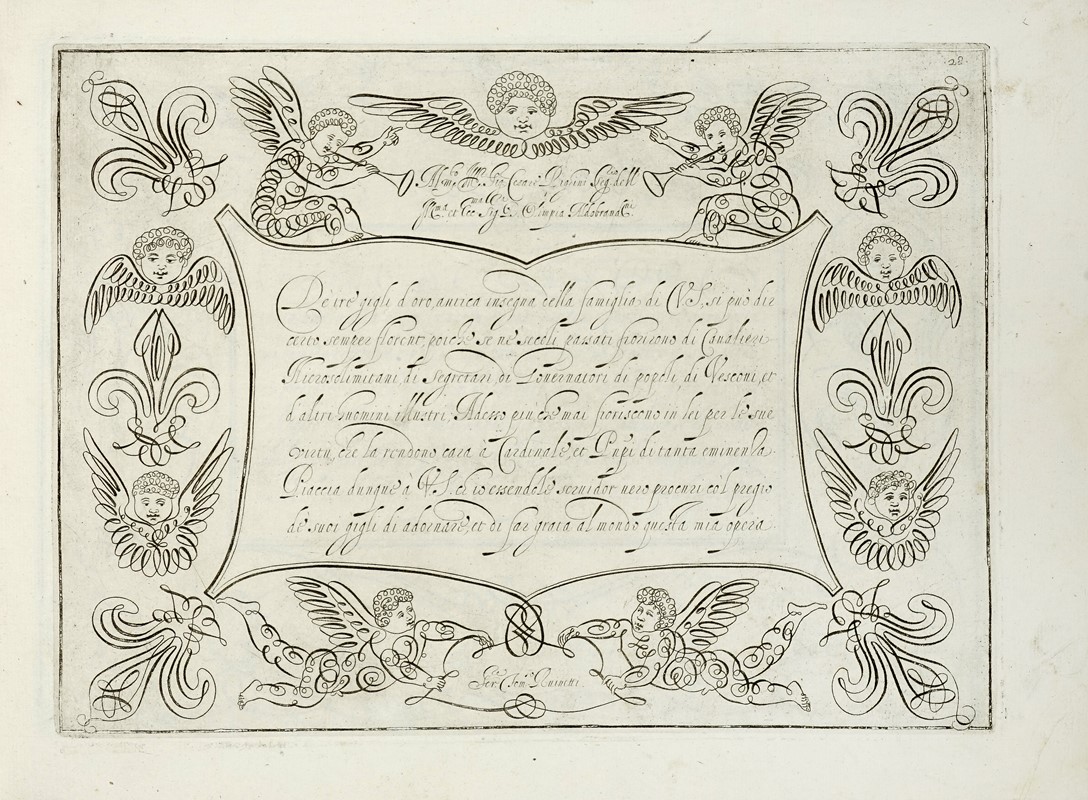 28.
All'm.to Ill.re Sig. Cesare Righini Seg.rio dell'
Ill.ma et Ecc.ma Sig.ra Olimpia Aldobrand.ni
De tre gigli d'oro, antica insegna della famiglia di V.S. si può dir
certo semper florent, poiche se ne secoli passati fiorirono di Cavalieri
Hierosolimitani, di Segretari, di Governatori di popoli, di Vesconi, et
d'altri huomini illustri; Adesso più che mai fioriscono in lei per le sue
virtù, che la rendono cara à Cardinale, et Prīpi di tanta eminenza.
Piaccia dunque à V.S. ch'io essendole servidor vero procuri co'l pregio
de suoi gigli di adornare, et di far grata al mondo questa mia opera.
Ser.re Tom.o Ruinetti.